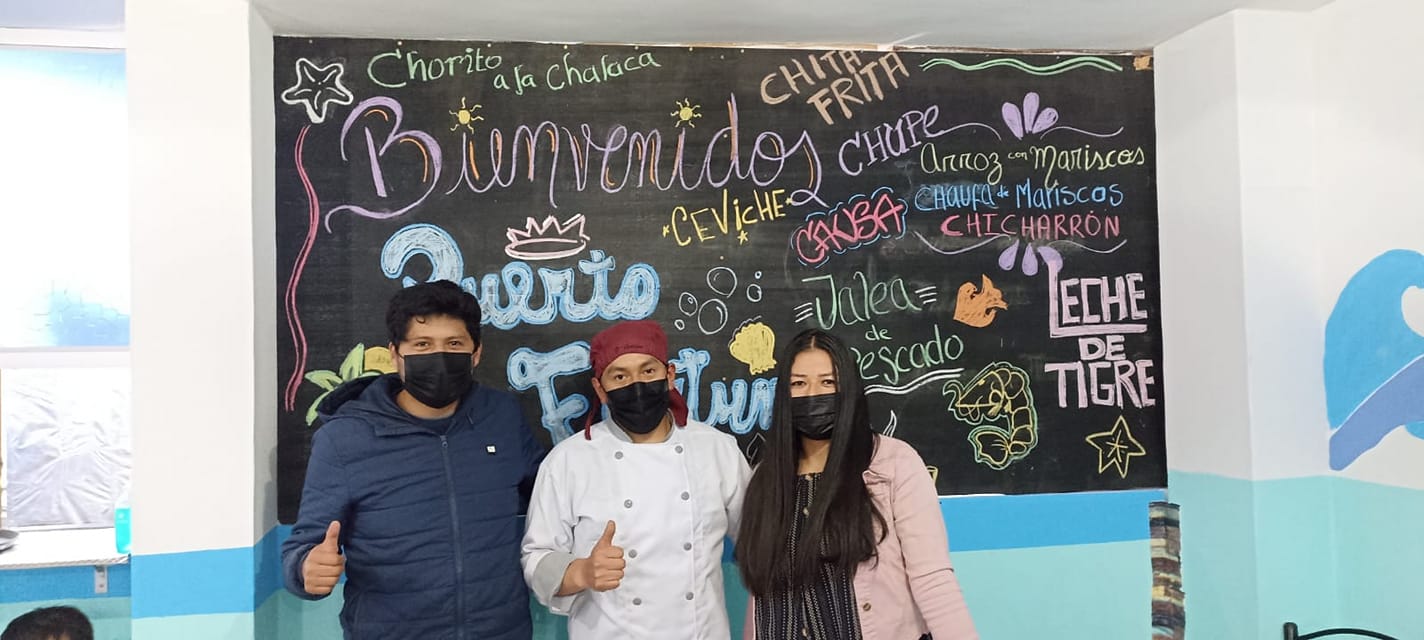 Chorito
a la Chalaca
CHITA
FRITA
Bienvenidos
CHUPE
Arroz con Mariscos
CHAUFA de Mariscos
CHICHARRÓN
CEVICHE
CAUSA
Puerto
Jalea
de
Pescado
LECHE
DE
TIGRE